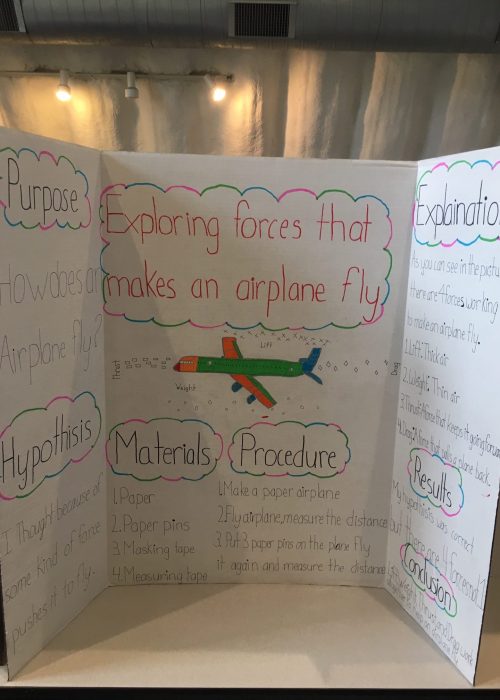 Purpose
How does an
Airplane fly?
Hypothisis
I Thought because of
some kind of force
pushes it to fly.
Exploring forces that
makes an airplane fly
Lift
Thrust
Drag
Weight
Materials
1. Paper
2. Paper pins
3. Masking tape
4. Measuring tape
Procedure
1. Make a paper airplane
2. Fly airplane, measure the distance
3. Put 3 paper pins on the plane fly
it again and measure the distance
Explaination
As you can see in the pictur
there are 4 forces working
to make an airplane fly.
1. Lift: Thick air
2. Weight: Thin air
3. Thrust: Force that keeps it going forward
4. Drag: Force that pulls a plane back.
Results
My hypothisis was correct
but there are 4 forces not 1
Conclusion
Lift, Weight, Thrust and Drag work
airplane fly